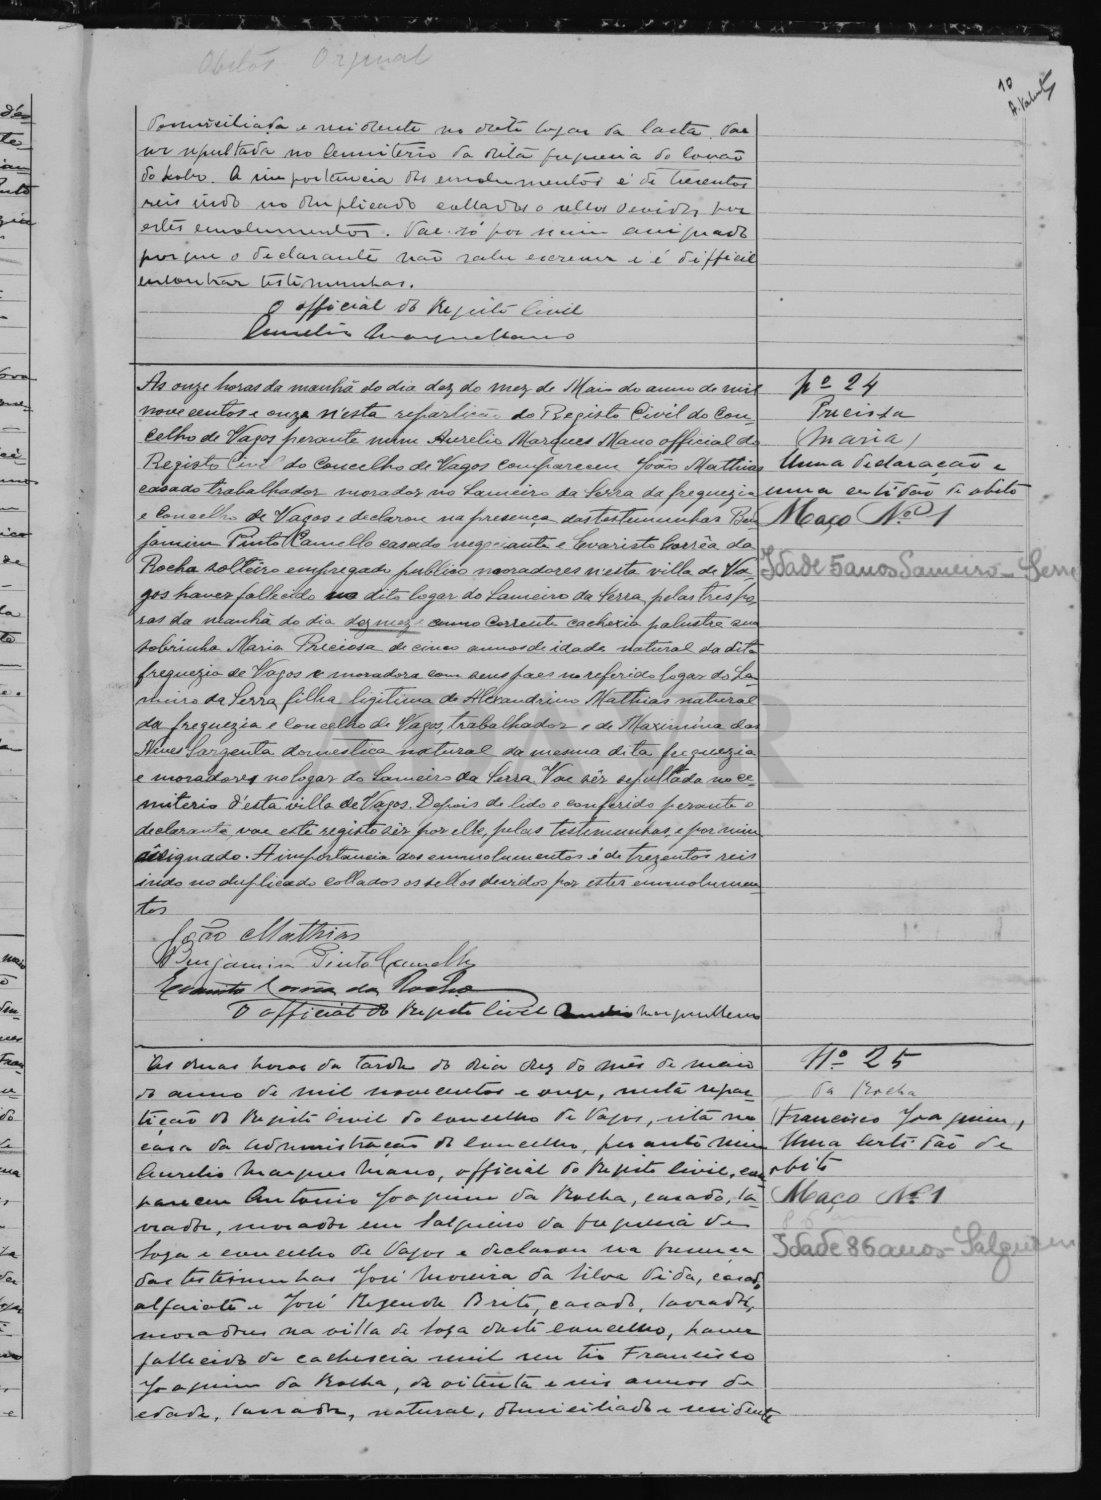 Obitos Original
10
domiciliada e residente no dito logar da Carta. Vae
ser sepultada no cemiterio da dita freguezia do Covão
do Lobo. A importancia dos emolumentos é de trezentos
reis indo no duplicado collados o sellos devidos por
estes emolumentos. Vae só por mim assignado
porque o declarante não sabe escrever e é difficil
encontrar testimunhas.
O official do Registo Civil
Aurelio Marques Mano
As onze horas da manhã do dia dez do mez de Maio do anno de mil
novecentos e onze n'esta repartição do Registo Civil do Con-
celho de Vagos perante mim Aurelio Marques Mano official do
Registo Civil do Concelho de Vagos compareceu João Mathias
casado trabalhador morador no Lameiro da Serra da freguezia
e Concelho de Vagos e declarou na presença das testemunhas Ben-
jamim Pinto Camello casado negociante e Evaristo Corrêa da
Rocha solteiro empregado publico moradores n'esta villa de Va-
gos haver fallecido no dito logar do Lameiro da Serra, pelas tres ho-
ras da manhã do dia dez mez e anno corrente cachexia palustre sua
sobrinha Maria Preciosa de cinco annos de idade natural da dita
freguezia de Vagos e moradora com seus paes no referido logar do La-
meiro da Serra, filha ligitima de Alexandrino Mathias natural
da freguezia e Concelho de Vagos, trabalhador e de Maximina das
Neves Sargenta domestica natural da mesma dita freguezia
e moradores no logar do Lameiro da Serra. Vae sêr sepultada no ce-
miterio d'esta villa de Vagos. Depois de lido e conferido perante o
declarante, vae este registo sêr por elle, pelas testemunhas, e por mim
assignado. A importancia dos emmolumentos é de trezentos reis
indo no duplicado collados os sellos devidos por estes emmolumen-
tos
João Mathias
Benjamim Pinto Camello
Evaristo Corrêa da Rocha
O official do Registo Civil Aurelio Marques Mano
Nº 24
Preciosa
(Maria)
Uma declaração e
uma certidão de obito
Maço Nº 1
Idade 5 anos Lameiro - Serra
As duas horas da tarde do dia dez do mês de maio
do anno de mil novecentos e onze, nesta repar-
tição do Registo Civil do concelho de Vagos, sita na
casa da administração do concelho, perante mim
Aurelio Marques Mano, official do Registo Civil, com-
pareceu Antonio Joaquim da Rocha, casado, la-
vrador, morador em Salgueiro da freguezia de
Soza e concelho de Vagos e declarou na presença
das testimunhas José Moreira da Silva Vida, casado,
alfaiate e José Rezende Brito, casado, lavrador,
moradores na villa de Soza deste concelho, haver
fallecido de cachexia senil seu tio Francisco
Joaquim da Rocha, de oitenta e seis annos de
edade, lavrador, natural, domiciliado e residente
Nº 25
da Rocha
Francisco Joaquim,
Uma certidão de
obito
Maço Nº 1
Idade 86 anos - Salgueiro